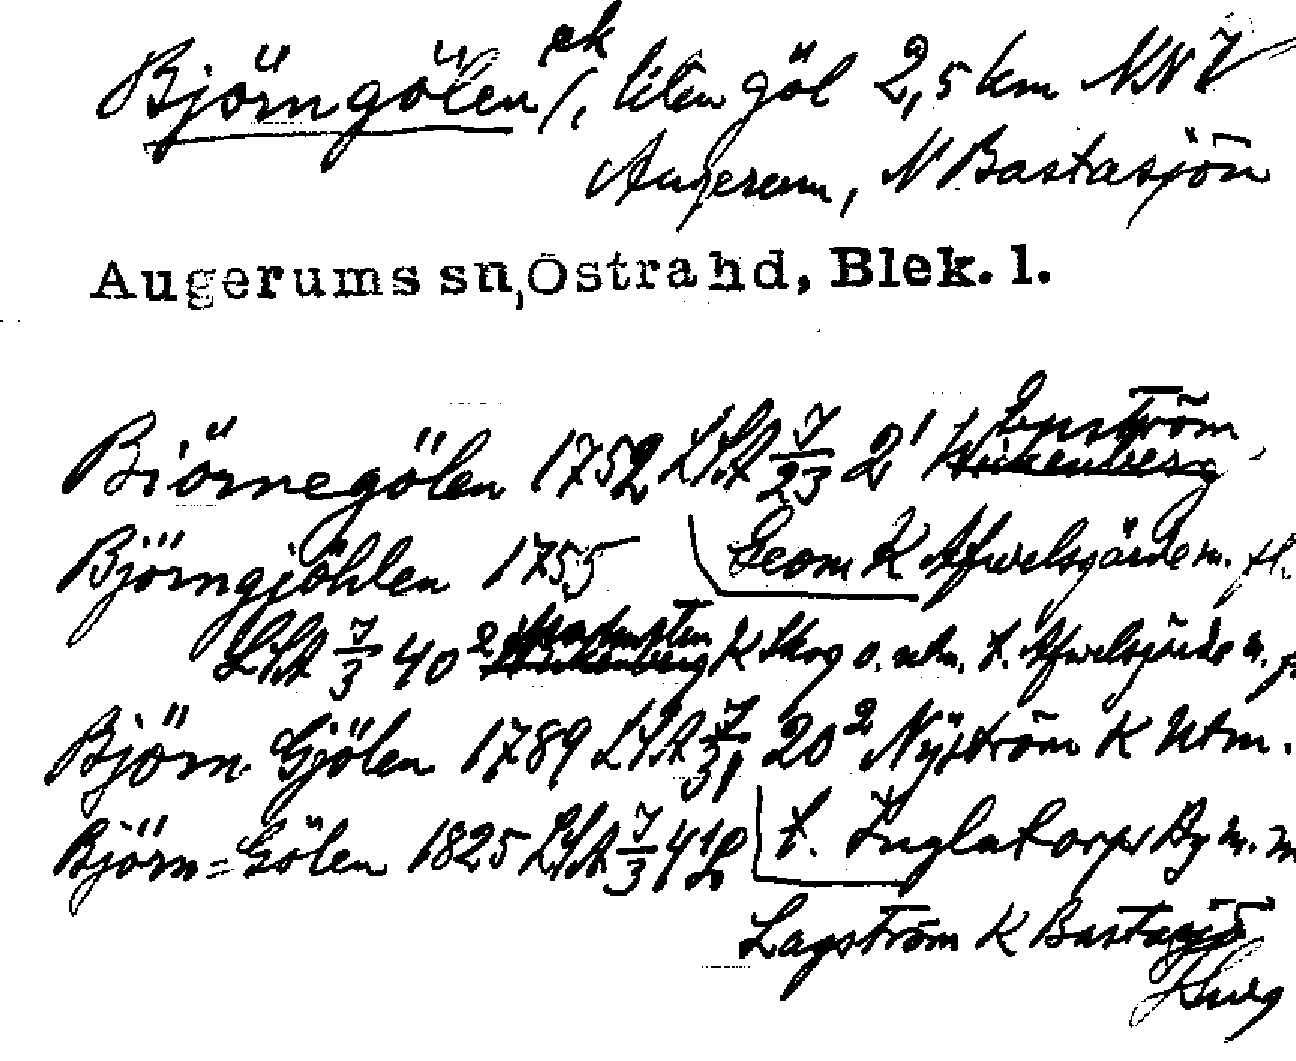 Björngölen ek /, liten göl 2,5 km NNV
Augerum, N Bastasjön
Augerums sn, Östra hd, Blek. l.
Biörnegölen 1752 LSA 7/23 2¹ Enström
Björngjöhlen 1755 Geom K Afvelsgärde m. fl.
LSA 7/3 40² K Skog o. utm. t. Afvelsgärde m. fl
Björn Gjölen 1789 LSA 7/31 20² Nyström K Utm.
Björn=Gölen 1825 LSA 7/3 41 t. Inglatorp By m. m
Lagström K Bastasjö